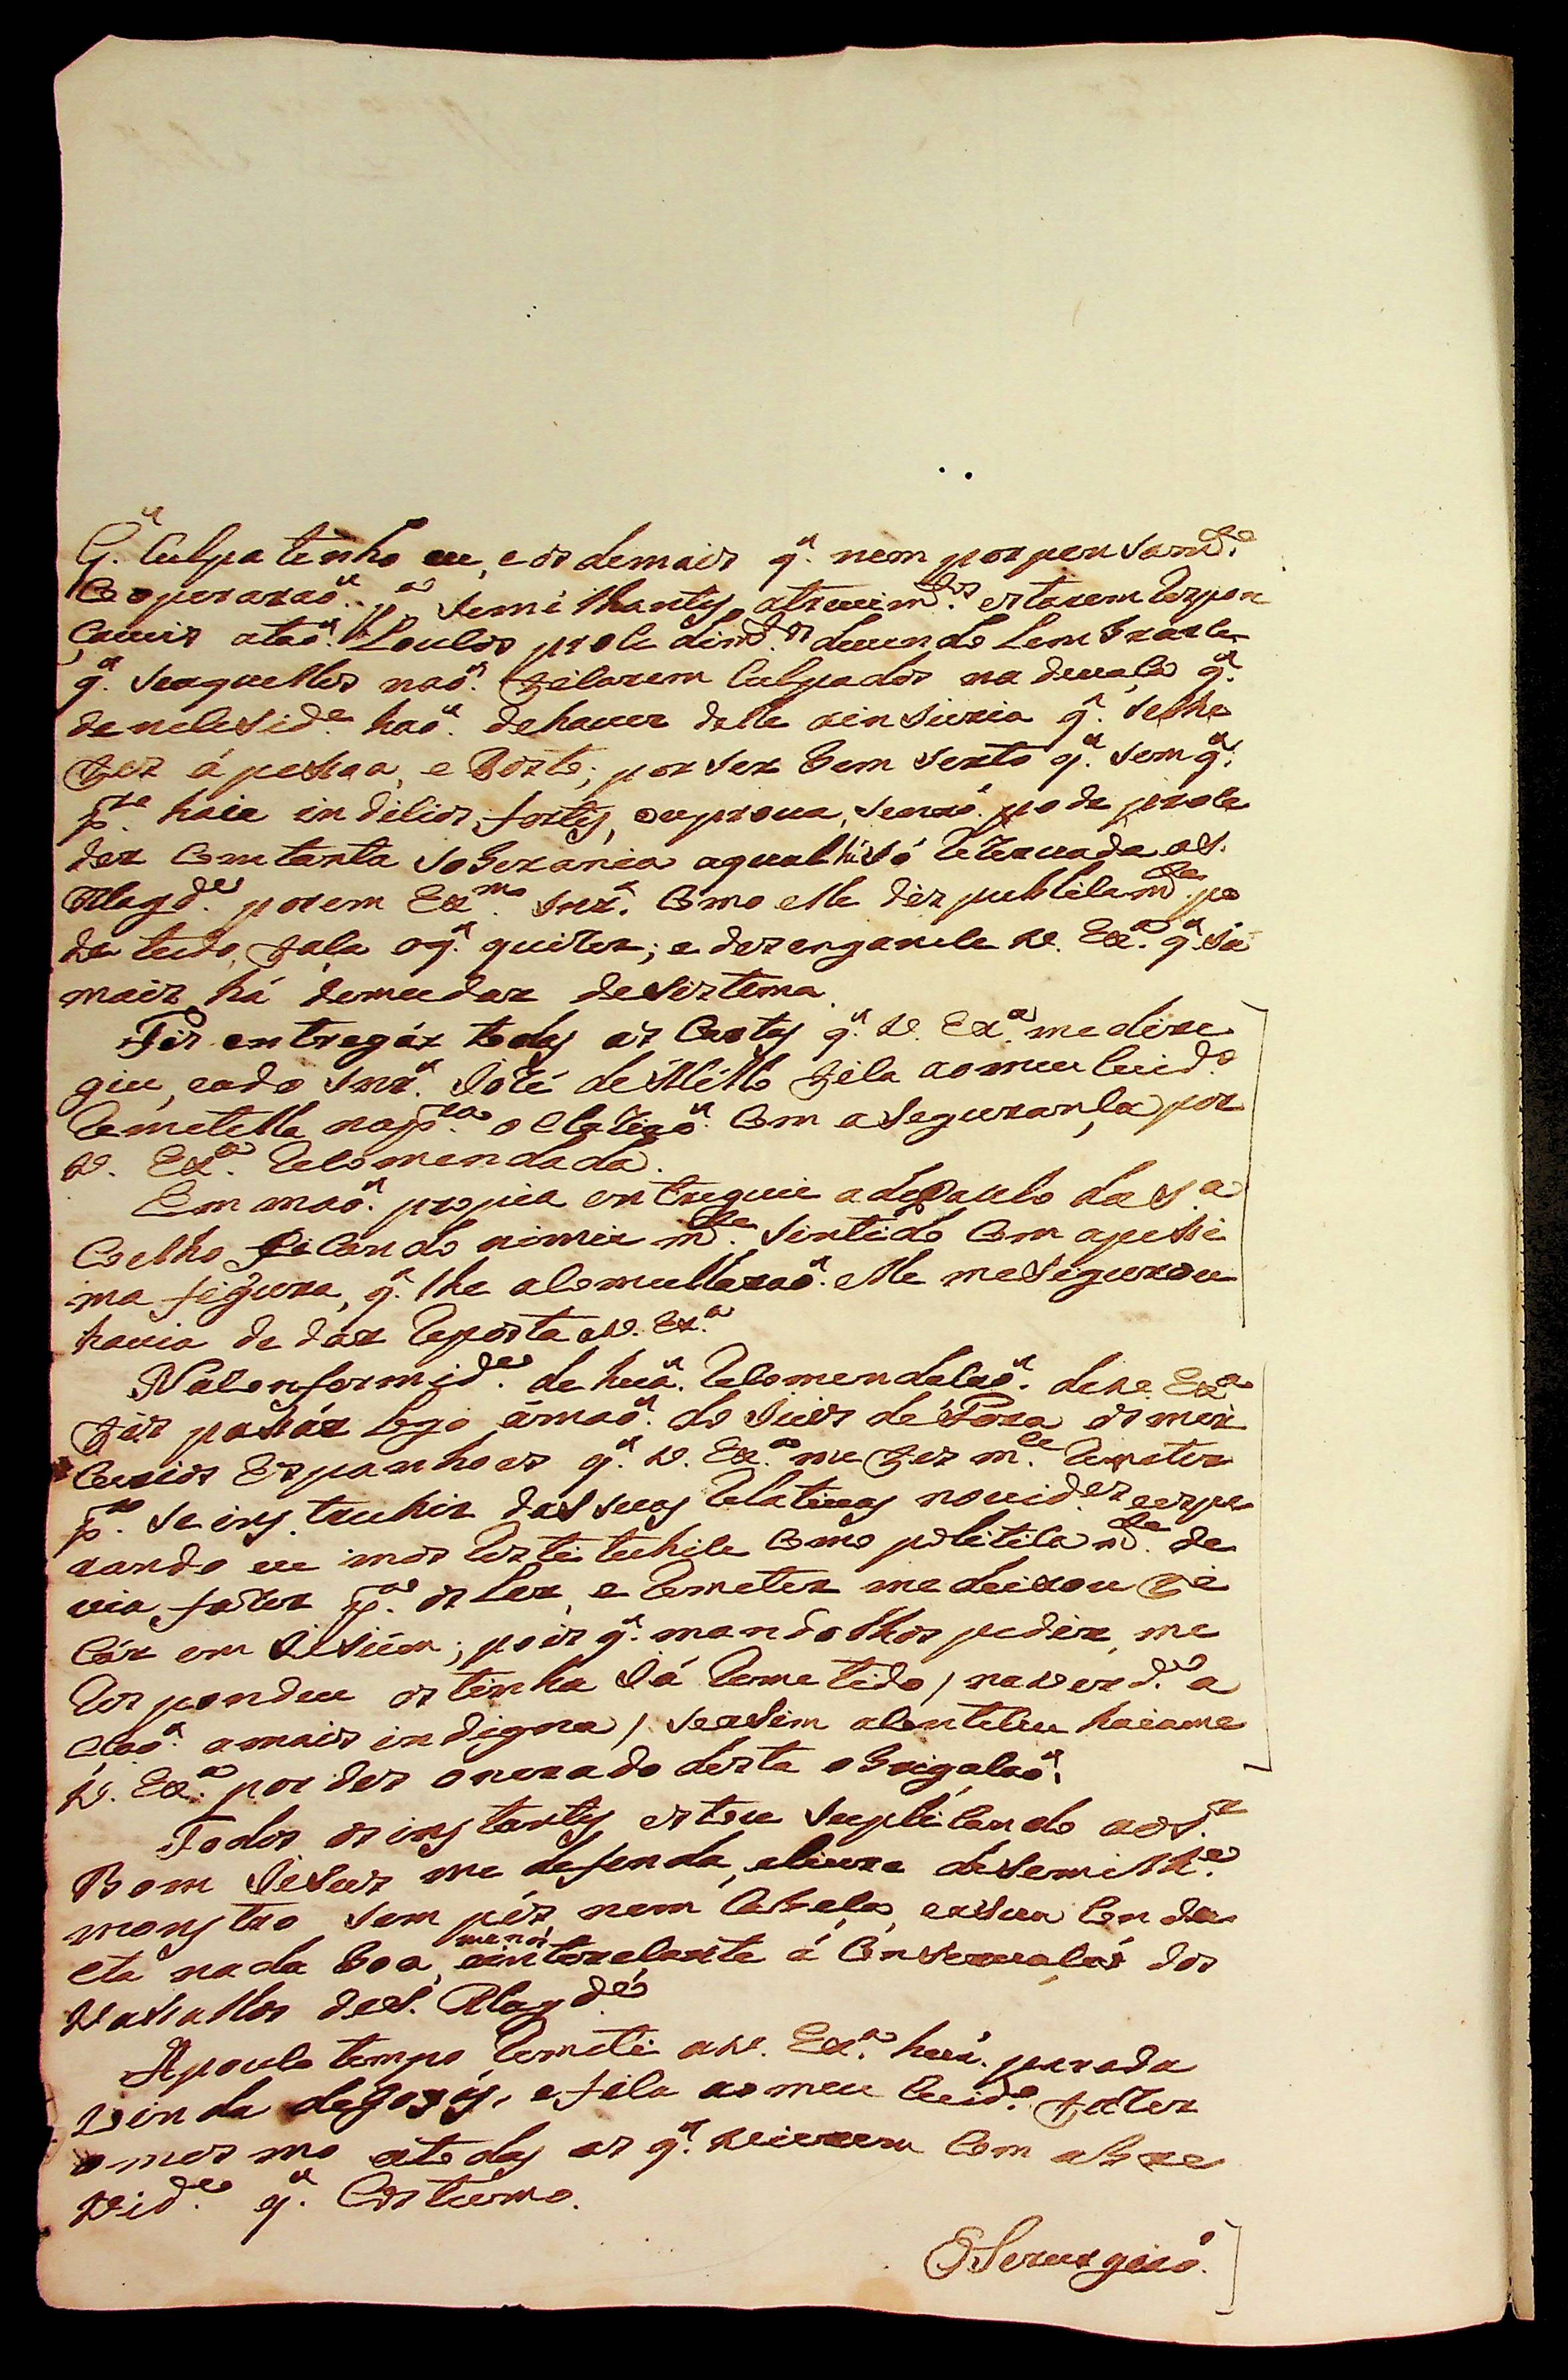 Q. Culpa tenho eu, e os demais q. nem por pensam.to
Coperaraõ. p.a Semilhantes atreuim.tos estarem Respon
çaueis ataõ. Loucos procedim.tos deuendo Lembrarce
q. Seaquelles naõ. ficarem Culpados na deuaça q.
de necesid.e haõ. dehauer delle ainjuria q. Selhe
fez á pesoa, e Corte; por ser bem Serto q. Sem q.
p.a haja indicios fortes, ou proua, Senaõ pode proce
der Com tanta Soberania aqual hé só Rezeruada a S.
Mag.de porem Ex.mo Snr. Como elle diz publicam.te po
de tudo, faça oq. quizer; e dezenganece V. Ex.a q. Ja
mais há demudar deSistema.
Fis entregár todas as Cartas q. V. Ex.a me dire
giu, eado Snr. Jozé de Mello fica aomeu cuid.o
Remetella nap.ra ocaziaõ. Com aSegurança por
V. Ex.a Recomendada.
Em maõ. propria entreguei a de Paulo da S.a
Coelho ficando nimiam.te Sintido Com apesi
ma figura, q. lhe acomullaraõ. elle meSigurou
hauia de dar Reposta aV. Ex.a
NaConformid.e de huã. Recomendacaõ. de V. Ex.a
fis pasár logo ámaõ. do Juis de Fora os mer
Curios Espanhoes q. V. Ex.a me fez m.ce Remeter
p.a Se instruhir dasSuas Relatiuas nouid.es eespe
rando eu mos Restetuhice Como politicam.te de
uia fazer p.a os Ler, e Remeter me deixou fi
Cár em Jejum; pois q. mandolhos pedir, me
Respondeu os tinha Já Remetido / naverd.e a
Caõ. amais indigna / Seasim aconteceu hajame
V. Ex.a por dezonerado desta obrigacaõ.
Todos os instantes estou Suplicando aoS.r
Bom Jesus me defenda, eliure deSemilh.e
monstro Sem pés, nem Cabeça, easua Condu
cta nada boa, menos interesante á Conseruacaõ dos
Vasallos deS. Mag.de
Apouco tempo Remeti aV. Ex.a huã. parada
Vinda deGoyás, e fica aomeu Cuid.o fazer
omesmo atodas as q. Vierem Com abre
Vid.e q. Custumo.